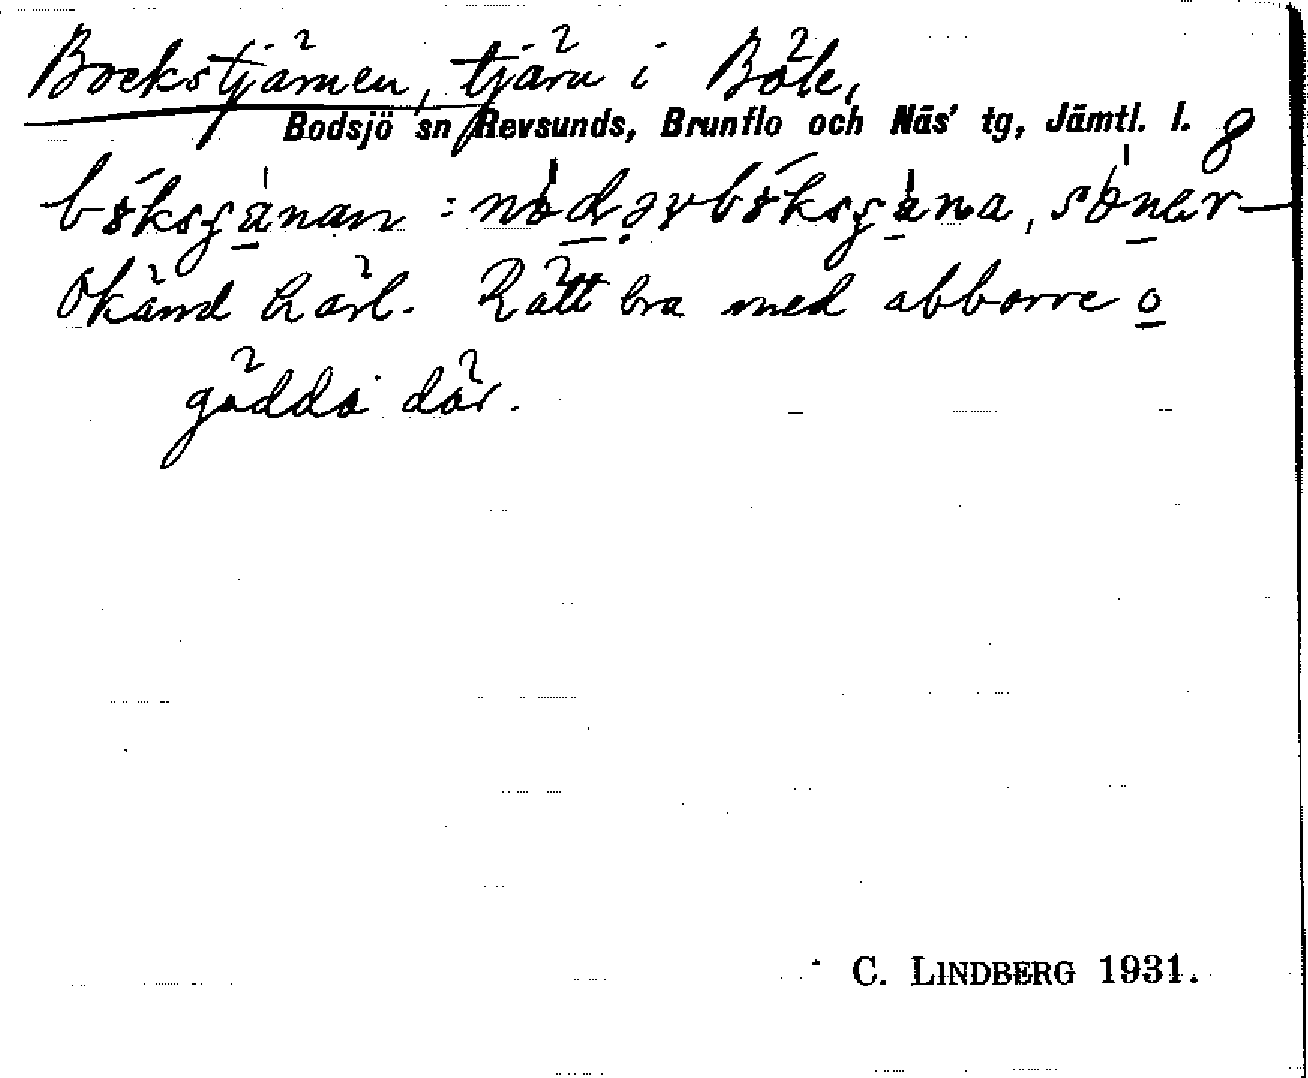 Bockstjärnen, tjärn i Böle,
Bodsjö sn, Revsunds, Brunflo och Näs' tg, Jämtl. l. 8
Okänd härl. Rätt bra med abborre o
gädda där.
C. LINDBERG 1931.